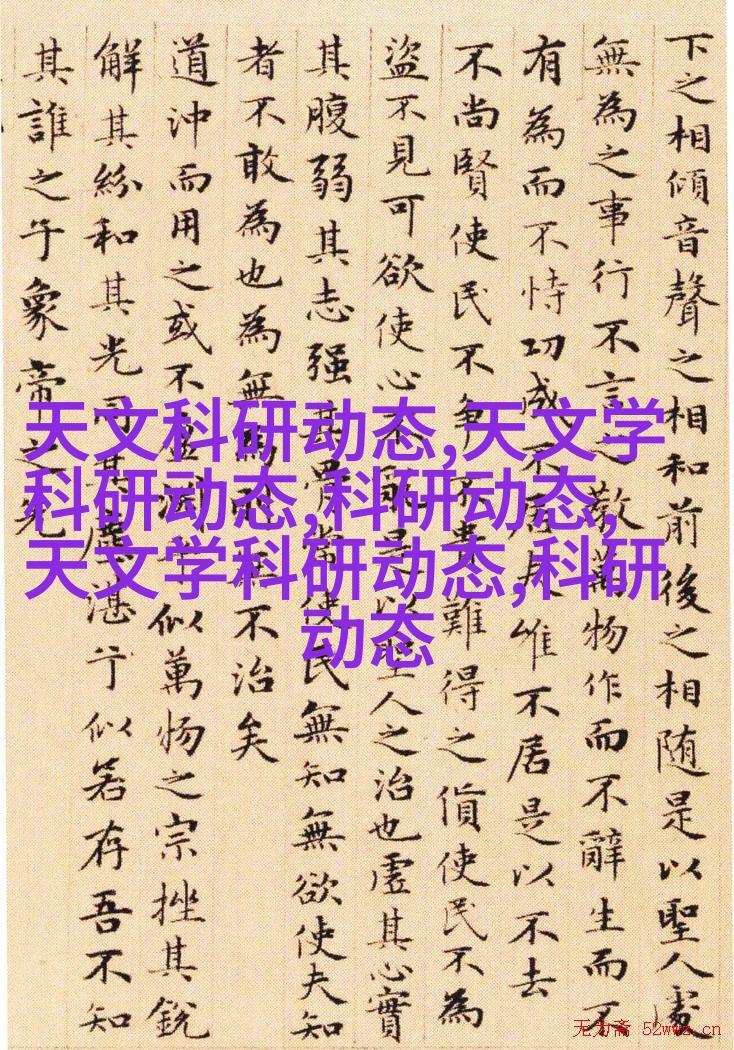 下之相傾音聲之相和前後之相随是以聖人處
無為之事行不言之教萬物作而不辭生而不
有為而不恃功成不居夫惟不居是以不去
不尚賢使民不争不貴難得之貨使民不為
盜不見可欲使心不亂是以聖人之治也虛其心實
其腹弱其志强其骨常使民無知無欲使夫知
者不敢為也為無為則無不治矣
道沖而用之或不盈淵乎似萬物之宗挫其銳
解其紛和其光同其塵湛兮似若存吾不知
其誰之子象帝之先
天文科研动态,天文学
科研动态,科研动态,
天文学科研动态,科研
动态
无为斋 52wwz.cn